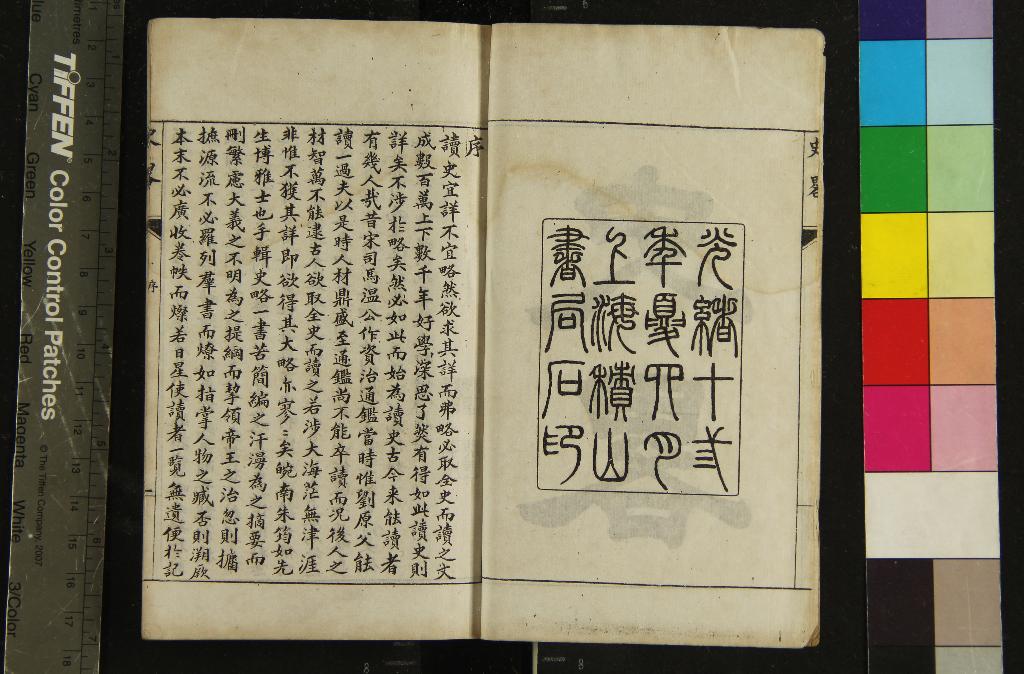 史畧
光緒十弍
年夏月
上海積山
書局石印
序
讀史宜詳不宜略然欲求其詳而弗略必取全史而讀之文
成數百萬上下數千年好學深思了然有得如此讀史則
詳矣不涉於略矣然必如此而始為讀史古今来能讀者
有幾人哉昔宋司馬温公作資治通鑑當時惟劉原父能
讀一過夫以是時人材鼎盛至通鑑尚不能卒讀而况後人之
材智萬不能逮古人欲取全史而讀之若涉大海茫無津涯
非惟不獲其詳即欲得其大略亦寥〻矣皖南朱筠如先
生博雅士也手輯史略一書苦簡編之汗漫為之摘要而
刪繁慮大義之不明為之提綱而挈領帝王之治忽則攟
摭源流不必羅列羣書而燎如指掌人物之臧否則溯厥
本末不必廣收卷帙而燦若日星使讀者一覧無遺便於記
史畧
序
一
TIFFEN Color Control Patches
© The Tiffen Company, 2007
Cyan
Green
Yellow
Red
Magenta
White
3/Color